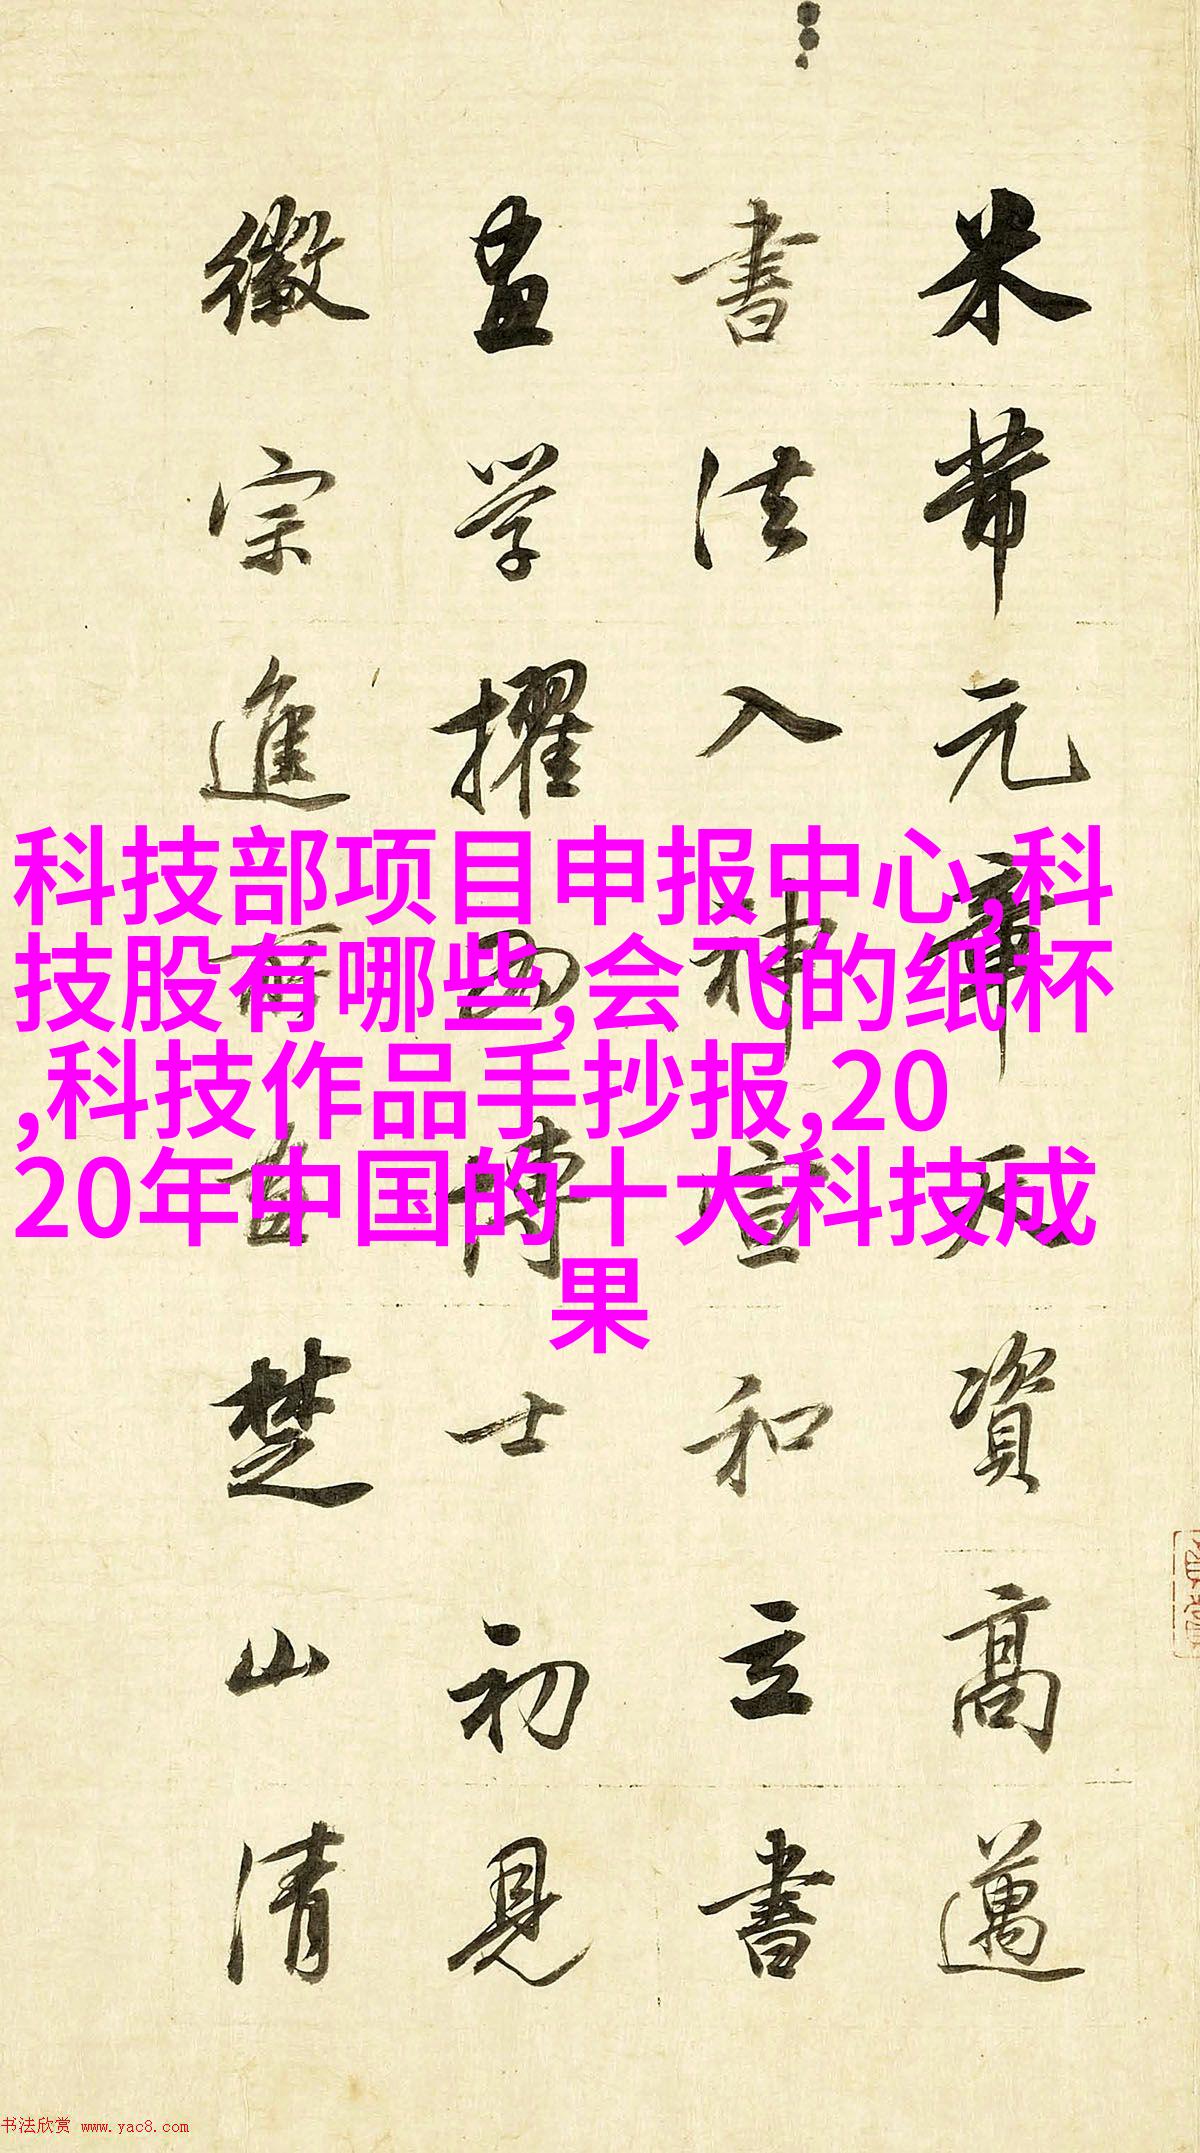 米芾元章天資高邁
書法入神宣和立書
畫学擢為博士初見
徽宗進所畫楚山清
科技部项目申报中心,科
技股有哪些,会飞的纸杯
,科技作品手抄报,20
20年中国的十大科技成
果
书法欣赏 www.yac8.com